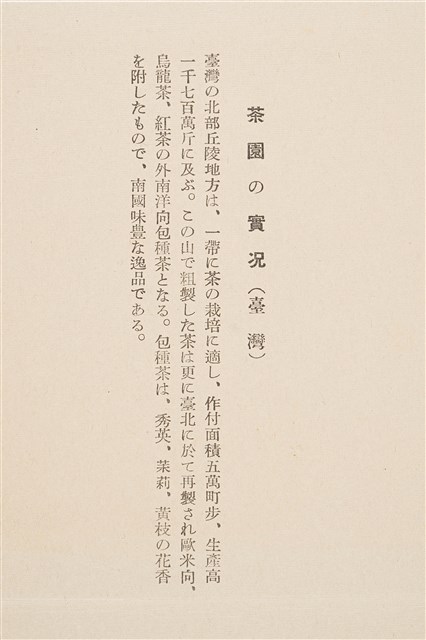 茶園の實况(臺灣)
臺灣の北部丘陵地方は、一帶に茶の栽培に適し、作付面積五萬町步、生產高
一千七百萬斤に及ぶ。この山で粗製した茶は更に臺北に於て再製され歐米向、
烏龍茶、紅茶の外南洋向包種茶となる。包種茶は、秀英、茉莉、黃枝の花香
を附したもので、南國味豊な逸品である。